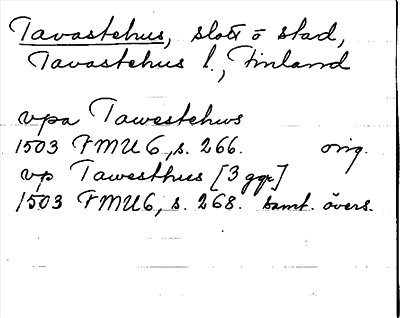 Tavastehus, slott o stad,
Tavastehus l., Finland
vpa Tawestehws
1503 FMU 6, s. 266. orig.
vp Tawesthus [3 ggr]
1503 FMU 6, s. 268. samt. övers.